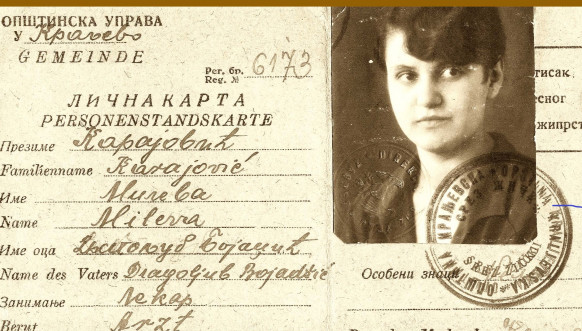 ОПШТИНСКА УПРАВА
У Краљево
GEMEINDE
Рег. бр.
Reg. № 6173
ЛИЧНА КАРТА
PERSONENSTANDSKARTE
Презиме Карајовић
Familienname Karajović
Име Милева
Name Mileva
Име оца Драгољуб Бојаџић
Name des Vaters Dragoljub Bojadžić
Занимање Лекар
Beruf Arzt
тисак
есног
жипрст
КРАЉЕВСКА ОПШТИНА
СРЕЗ ЖИЧКИ
Особени знаци